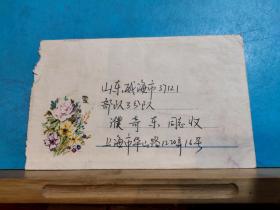 山东威海市37121
部队3分队
濮奇东同志收
上海市华山路1220弄16号